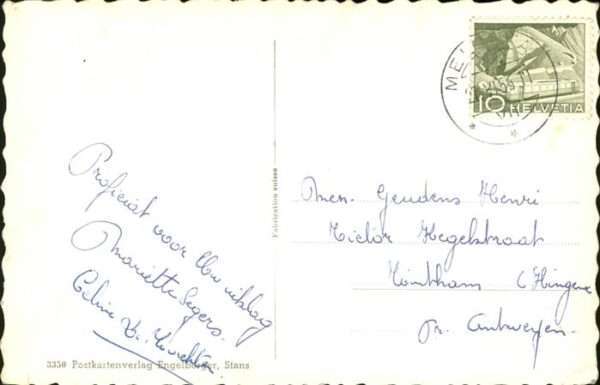 Proficiat voor Uw uitslag
Mariette Segers.
Celine V.
3358 Postkartenverlag Engelberger, Stans
Fabrication suisse
10 HELVETIA
Geudens Henri
Victor Hegelstraat
Hointham (Hingene
pr. Antwerpen.